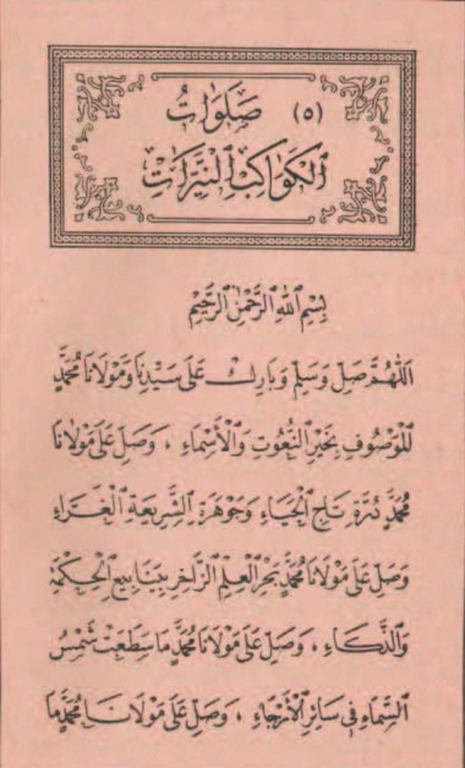 (٥) صَلَوَاتُ
الْكَوَاكِبِ النَّيِّرَاتِ
بِسْمِ اللهِ الرَّحْمٰنِ الرَّحِيْمِ
اَللّٰهُمَّ صَلِّ وَسَلِّمْ وَبَارِكْ عَلَى سَيِّدِنَا وَمَوْلَانَا مُحَمَّدٍ
الْمَوْصُوفِ بِخَيْرِ النُّعُوتِ وَالْأَسْمَاءِ ، وَصَلِّ عَلَى مَوْلَانَا
مُحَمَّدٍ دُرَّةِ تَاجِ الْحَيَاءِ وَجَوْهَرَةِ الشَّرِيعَةِ الْغَرَّاءِ
وَصَلِّ عَلَى مَوْلَانَا مُحَمَّدٍ بَحْرِ الْعِلْمِ الزَّاخِرِ بِيَنَابِيعِ الْحِكْمَةِ
وَالذَّكَاءِ ، وَصَلِّ عَلَى مَوْلَانَا مُحَمَّدٍ مَا سَطَعَتْ شَمْسُ
السَّمَاءِ فِي سَائِرِ الْأَرْجَاءِ ، وَصَلِّ عَلَى مَوْلَانَا مُحَمَّدٍ مَا